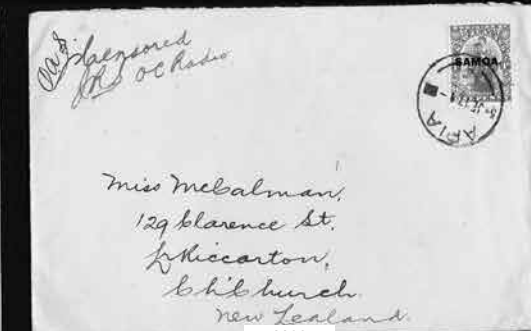 OAS. Uncensored
OC Radio
SAMOA
APIA
Miss McCalman,
129 Clarence St.
Riccarton,
ChChurch.
New Zealand.